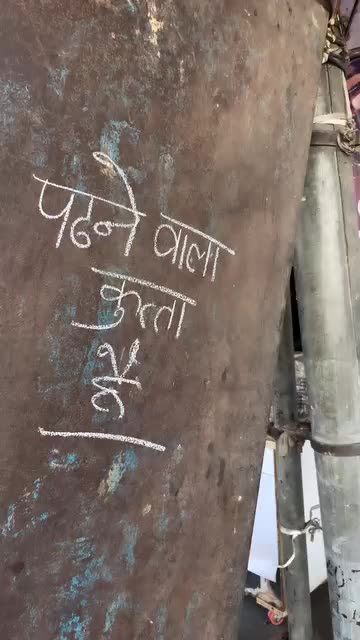 पढने वाला
कुत्ता
है